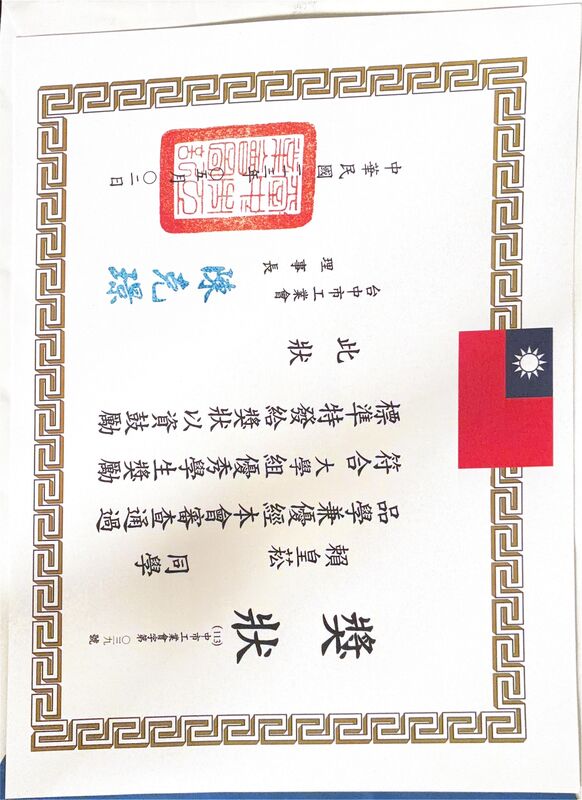 獎狀
(113)中市工業會字第〇三九號
賴皇菘 同學
品學兼優經本會審查通過
符合大學組優秀學生獎勵
標準特發給獎狀以資鼓勵
此狀
台中市工業會
理事長
中華民國一一三年〇五月〇二日